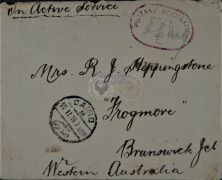 On Active Service
Mrs. R. J. Appingstone
"Frogmore"
Brunswick Jct
Western Australia
CAIRO